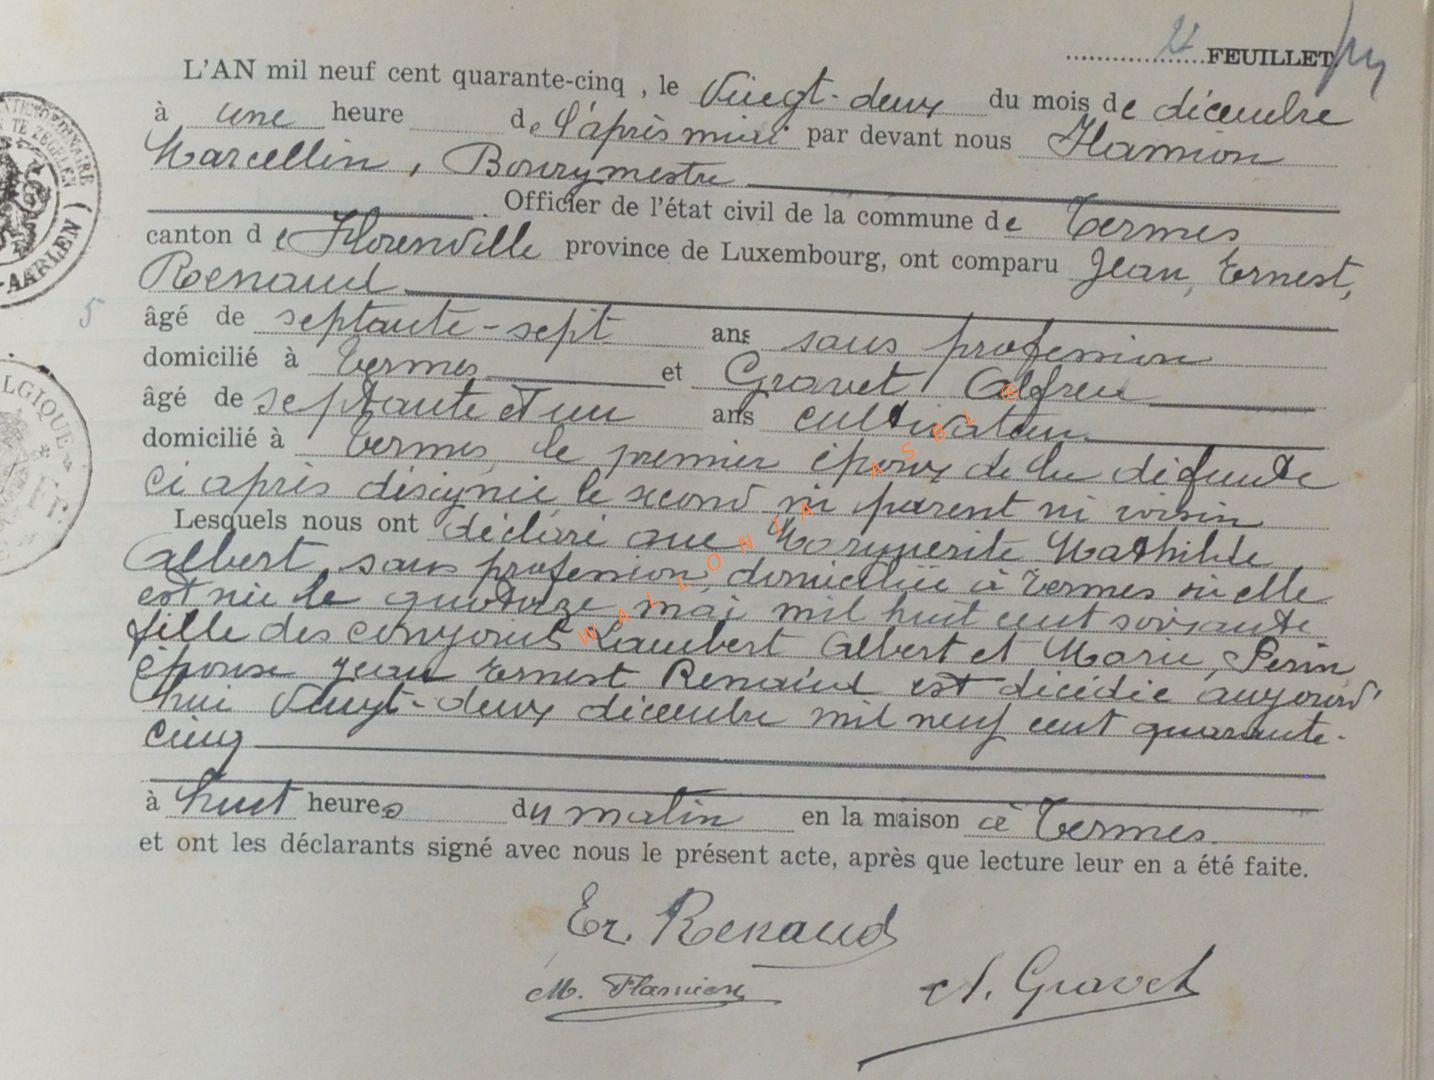 FEUILLET
L'AN mil neuf cent quarante-cinq, le Vingt-deux du mois de décembre
à une heure de l'après midi par devant nous Flamion
Marcellin, Bourgmestre
Officier de l'état civil de la commune de Termes
canton de Florenville province de Luxembourg, ont comparu Jean, Ernest,
Renaud
âgé de septante-sept ans sans profession
domicilié à Termes et Gravet Alfred
âgé de septante et un ans cultivateur
domicilié à Termes, le premier époux de la défunte
ci après désignée le second ni parent ni voisin
Lesquels nous ont déclaré que Marguerite Mathilde
Albert, sans profession, domiciliée à Termes où elle
est née le quatorze mai mil huit cent soixante
fille des conjoints Lambert Albert et Marie, Perin,
épouse Jean Ernest Renaud est décédée aujourd'
hui Vingt-deux décembre mil neuf cent quarante-
cinq
à huit heures du matin en la maison à Termes
et ont les déclarants signé avec nous le présent acte, après que lecture leur en a été faite.
Er. Renaud
M. Flamion
A. Gravet
5
AARLEN
BELGIQUE
FR.
WALLONIA ASBL ©